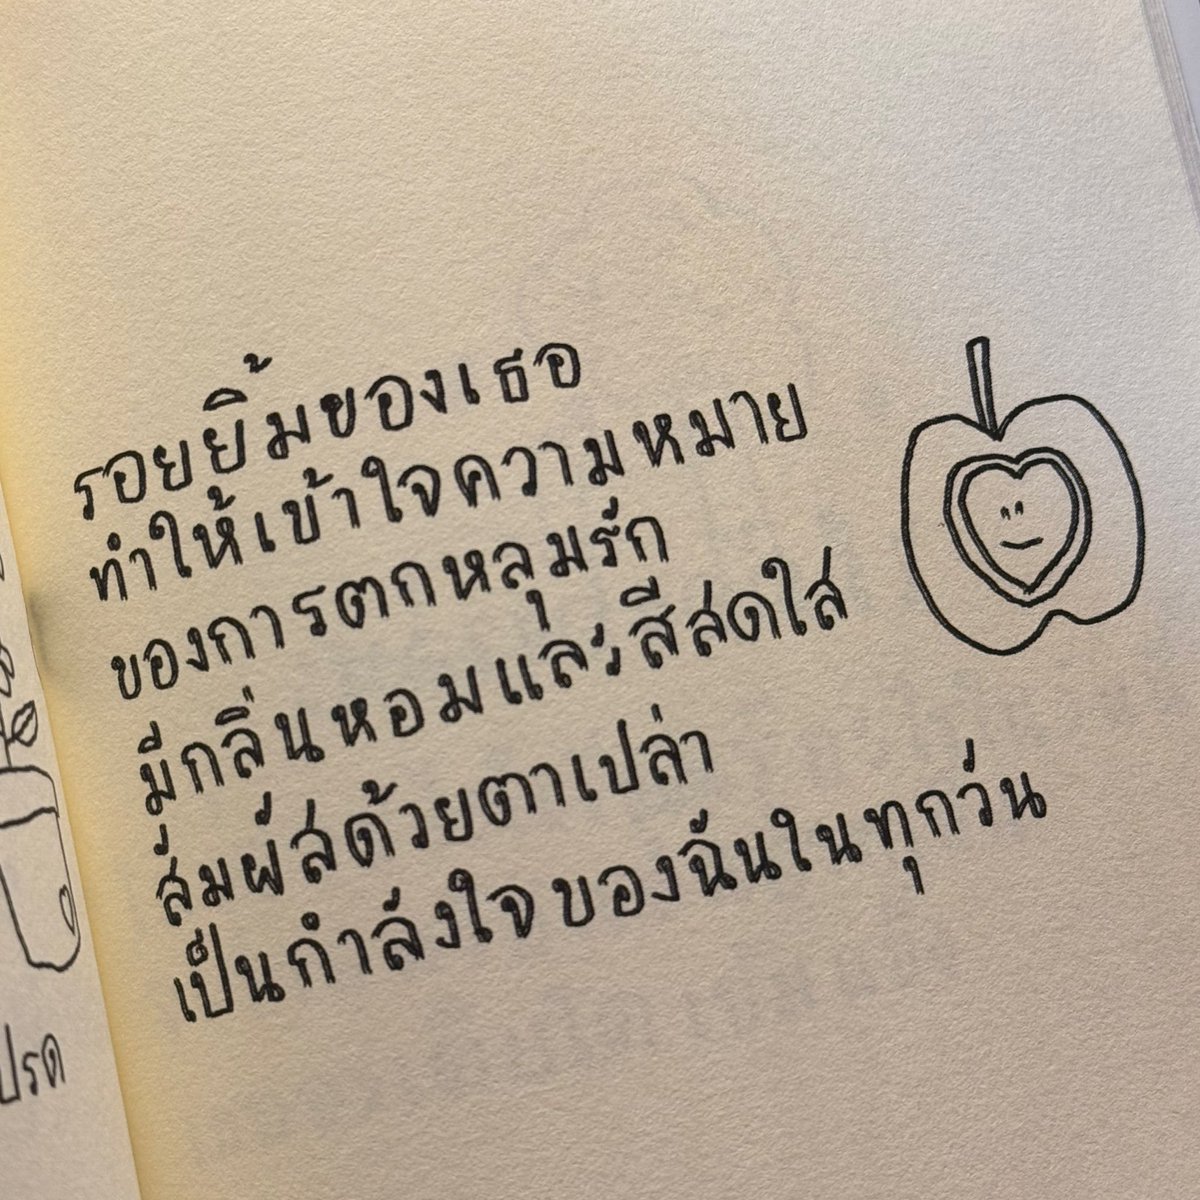 รอยยิ้มของเธอ
ทำให้เข้าใจความหมาย
ของการตกหลุมรัก
มีกลิ่นหอมและสีสดใส
สัมผัสด้วยตาเปล่า
เป็นกำลังใจของฉันในทุกวัน
ปรด